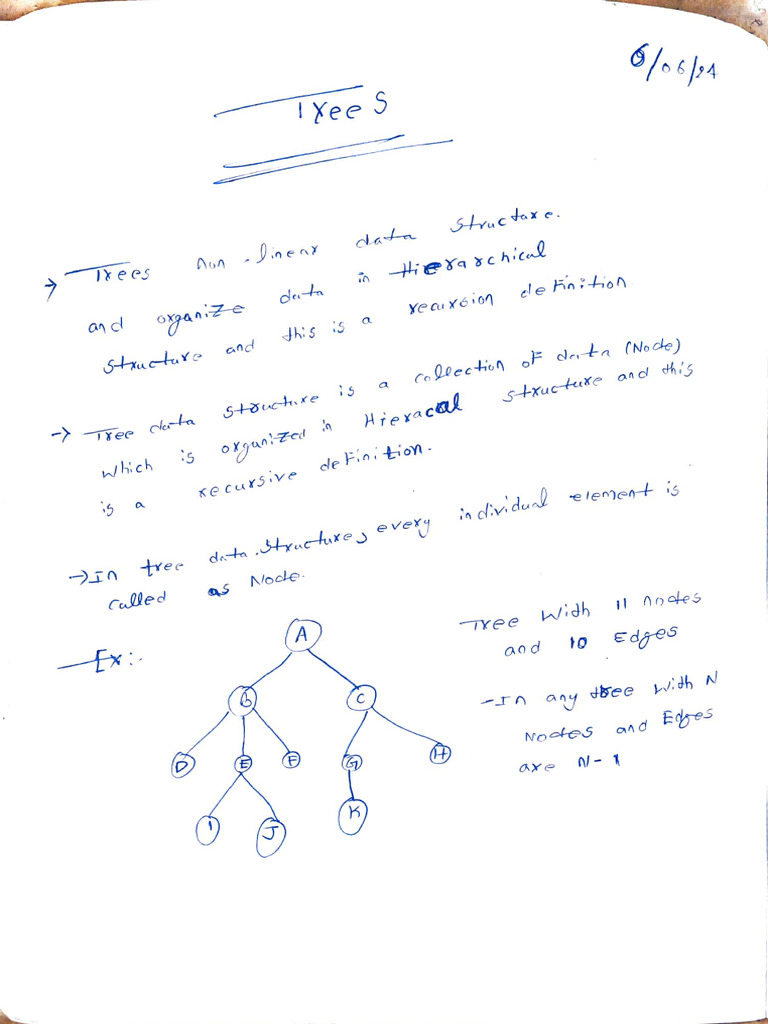 6/06/24
Trees
→ Trees non-linear data structure.
and organize data in Hierarchical
structure and this is a recursion definition
→ Tree data structure is a collection of data (Node)
which is organized in Hieracal structure and this
is a recursive definition.
→ In tree data structure, every individual element is
called as Node.
Ex:-
Tree with 11 nodes
and 10 Edges
- In any tree with N
Nodes and Edges
are N-1
A
B C
D E F G H
I J K